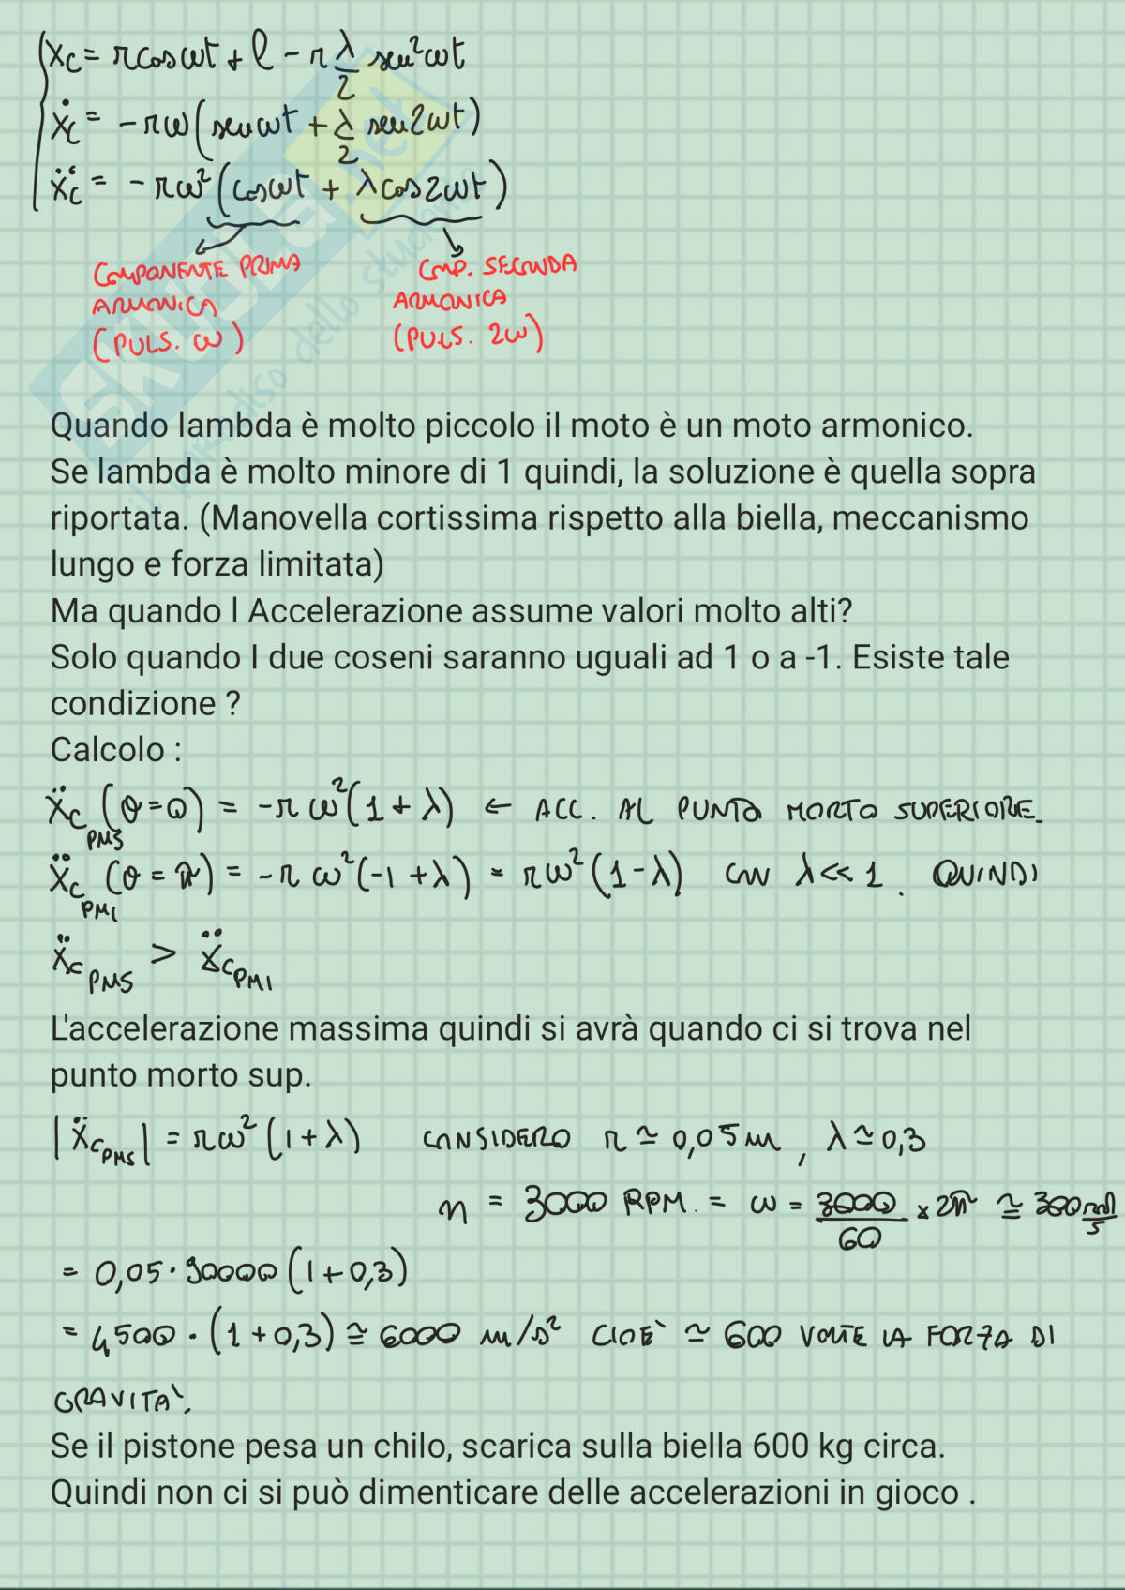 x_C = r cos ωt + l - r λ/2 sen² ωt
ẋ_C = - rω (sen ωt + λ/2 sen 2ωt)
ẍ_C = - rω² (cos ωt + λ cos 2ωt)
COMPONENTE PRIMA COMP. SECONDA
ARMONICA ARMONICA
(PULS. ω) (PULS. 2ω)
SKUOLA.net
dello studente
Quando lambda è molto piccolo il moto è un moto armonico.
Se lambda è molto minore di 1 quindi, la soluzione è quella sopra
riportata. (Manovella cortissima rispetto alla biella, meccanismo
lungo e forza limitata)
Ma quando l Accelerazione assume valori molto alti?
Solo quando I due coseni saranno uguali ad 1 o a -1. Esiste tale
condizione ?
Calcolo :
ẍ_C PMS (θ=0) = - r ω² (1 + λ) ← ACC. AL PUNTO MORTO SUPERIORE.
ẍ_C PMI (θ = π) = - r ω² (-1 + λ) = rω² (1-λ) CON λ<< 1. QUINDI
ẍ_C PMS > ẍ_C PMI
L'accelerazione massima quindi si avrà quando ci si trova nel
punto morto sup.
|ẍ_C PMS| = rω² (1+λ) CONSIDERO r ≃ 0,05 m, λ ≃ 0,3
n = 3000 RPM. = ω = 3000/60 × 2π ≃ 300 rad/s
= 0,05 · 90000 (1+0,3)
= 4500 · (1 + 0,3) ≅ 6000 m/s² CIOE` ≃ 600 VOLTE LA FORZA DI
GRAVITA`.
Se il pistone pesa un chilo, scarica sulla biella 600 kg circa.
Quindi non ci si può dimenticare delle accelerazioni in gioco .